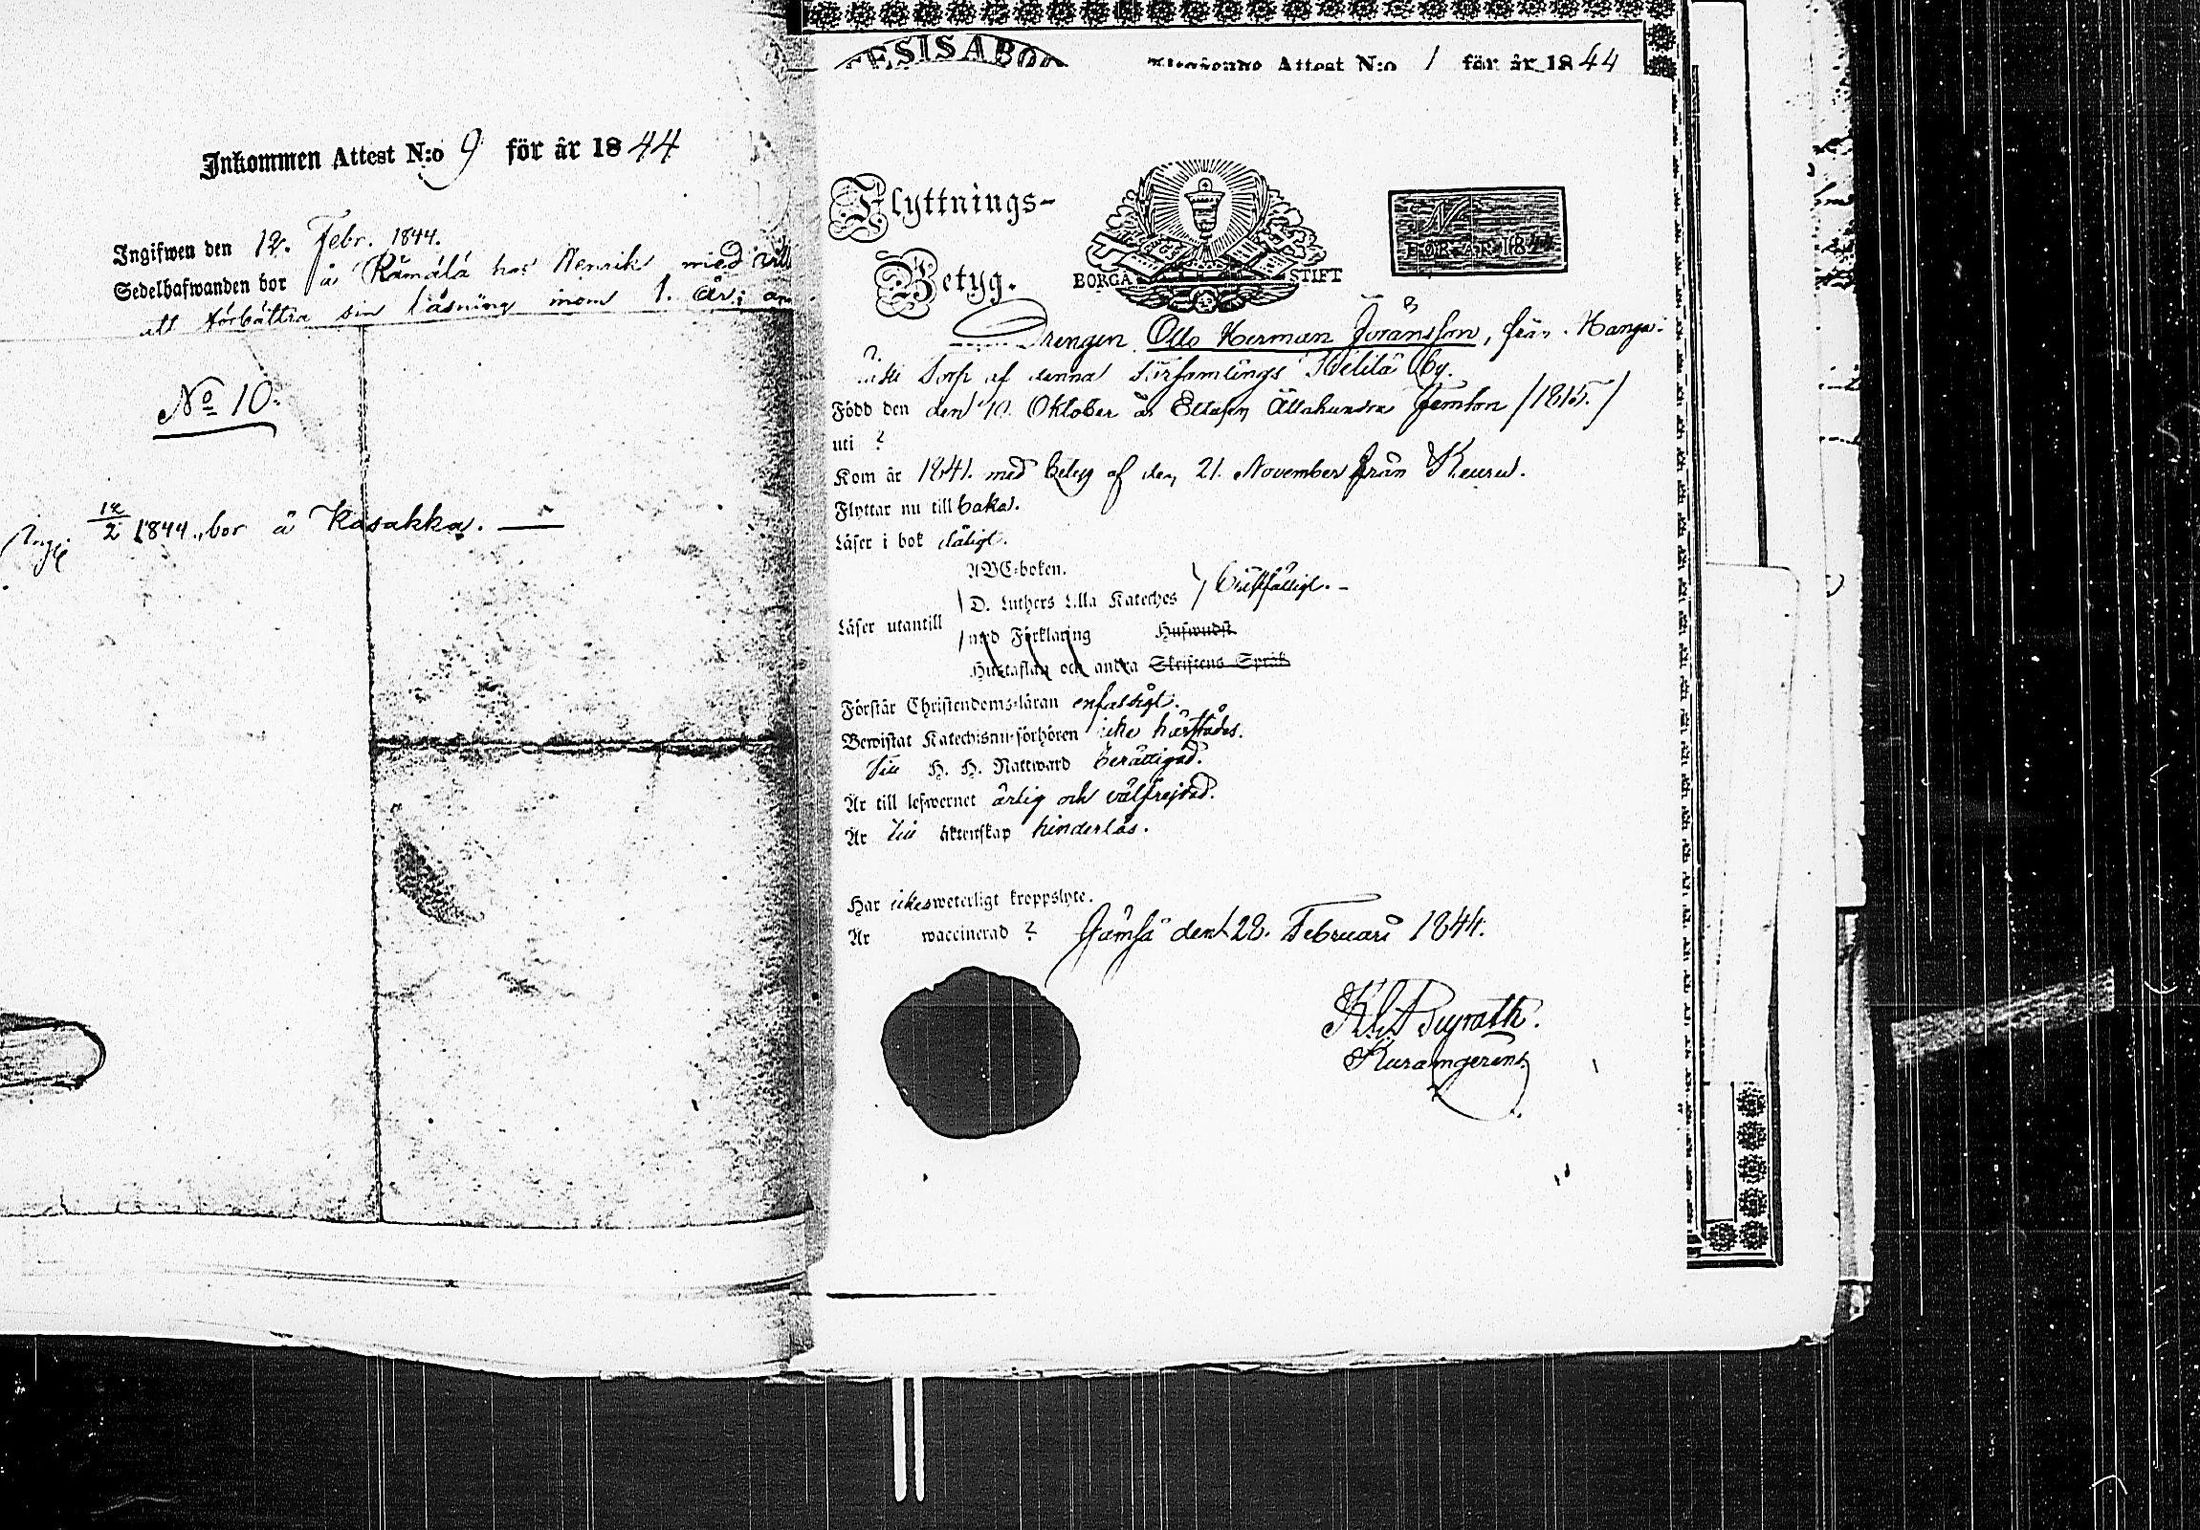 Inkommen Attest N:o 9 för år 1844
Ingifwen den 12. Febr. 1844.
Sedelhafwanden bor å Rämälä hos Henrik med
att förbättra sin läsning inom 1. år;
No 10.
12/2 1844, bor å Kasakka.
Attest N:o 1 för år 1844
Flyttnings-
Betyg.
BORGÅ STIFT
N
FÖR ÅR 1844
Drengen Otto Herman Göransson, från
Torp af denna församlings by.
Född den den 10. Oktober år Ettusen Åttahundra Femton /1815./
uti ?
Kom år 1841. med betyg af den 21. November från Keuru.
Flyttar nu till baka.
Läser i bok dåligt.
ABC-boken.
D. Luthers Lilla Kateches
Läser utantill
med Förklaring Huswudst.
Hustaflan och andra Skriftens Språk
Förstår Christendoms-läran enfaldigt.
Bewistat Katechismi-förhören icke härstädes.
Till H. H. Nattward berättigad.
Är till lefwernet ärlig och välfrejdad.
Är till äktenskap hinderlös.
Har icke sweterligt kroppslyte.
Är waccinerad ? Jämsä den 28. Februari 1844.
Kuramgerens.